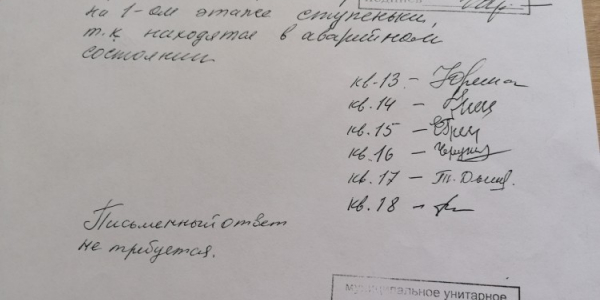 на 1-ом этаже ступеньки,
т.к находятся в аварийном
состоянии
кв.13 -
кв.14 -
кв.15 -
кв.16 -
кв.17 - Т.
кв.18 -
Письменный ответ
не требуется.
муниципальное унитарное